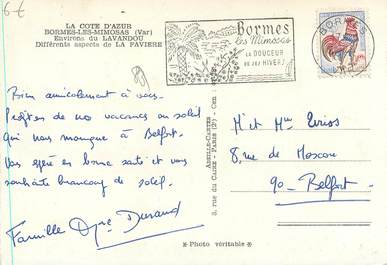 6€
LA COTE D'AZUR
BORMES-LES-MIMOSAS (Var)
Environs du LAVANDOU
Différents aspects de LA FAVIERE
Bormes
les Mimosas
LA DOUCEUR
DE SES HIVERS
BORMES
Bien amicalement à vous.
Profitons de nos vacances au soleil
qui nous manque à Belfort.
Vous espère en bonne santé et vous
souhaite beaucoup de soleil.
Famille Durand
ABEILLE-CARTES
8, RUE DU CAIRE - PARIS (2e)
M et Mme
8, rue de Moscou
90 - Belfort
* Photo véritable *